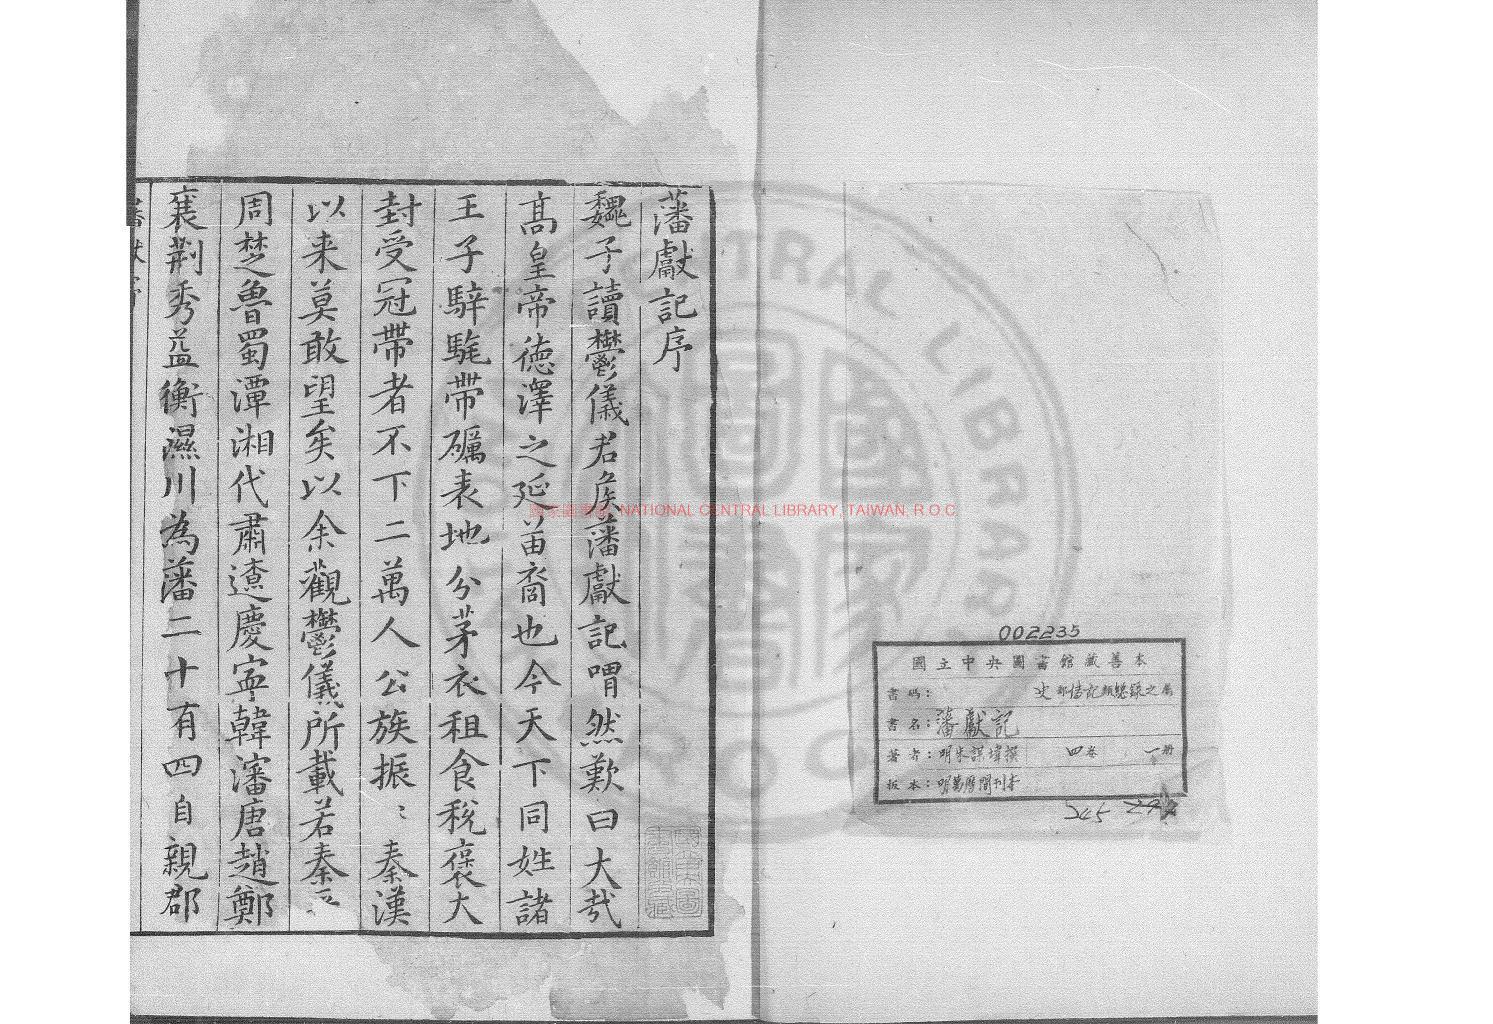 藩獻記序
魏子讀鬱儀君侯藩獻記喟然歎曰大哉
高皇帝德澤之延苗裔也今天下同姓諸
王子騂駹帶礪表地分茅衣租食稅褒大
封受冠帶者不下二萬人公族振〻秦漢
以来莫敢望矣以余觀鬱儀所載若秦
周楚魯蜀潭湘代肅遼慶寧韓瀋唐趙鄭
襄荆秀益衡濕川為藩二十有四自親郡
002235
國立中央圖書館藏善本
書碼：史部傳記類總錄之屬
書名：藩獻記
著者：明朱謀㙔撰 四卷 一冊
板本：明萬曆間刊本
NATIONAL CENTRAL LIBRARY, TAIWAN, R.O.C
CENTRAL LIBRARY